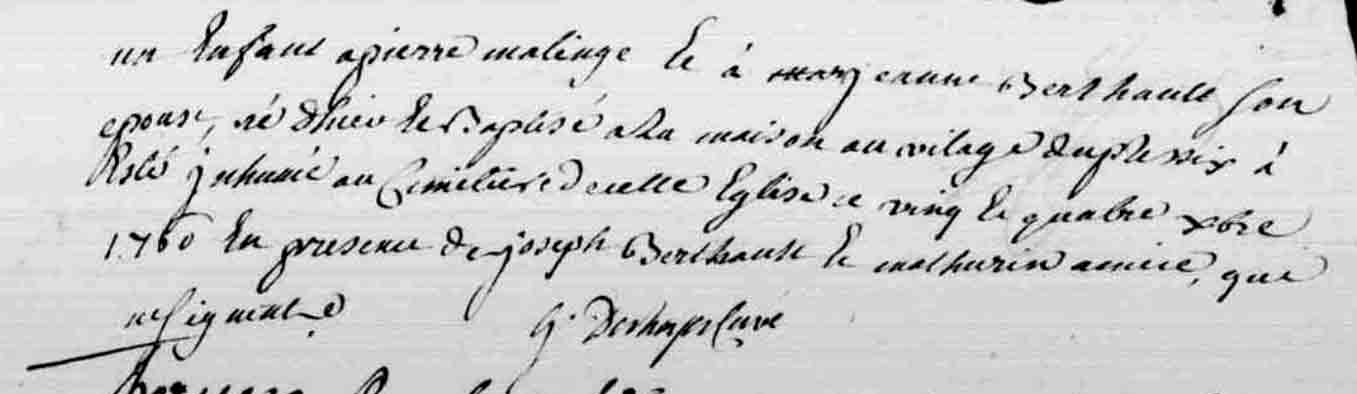 un Enfant a pierre malinge Et à mary jeanne Berthault son
epouse, né d'hier Et Baptisé a la maison au vilage du plessix à
Esté jnhumé au Cimetiere de cette Eglise ce ving Et quatre xbre
1760 En presence de joseph Berthault Et mathurin amice, qui
ne signent.
G. Deshayes Curé